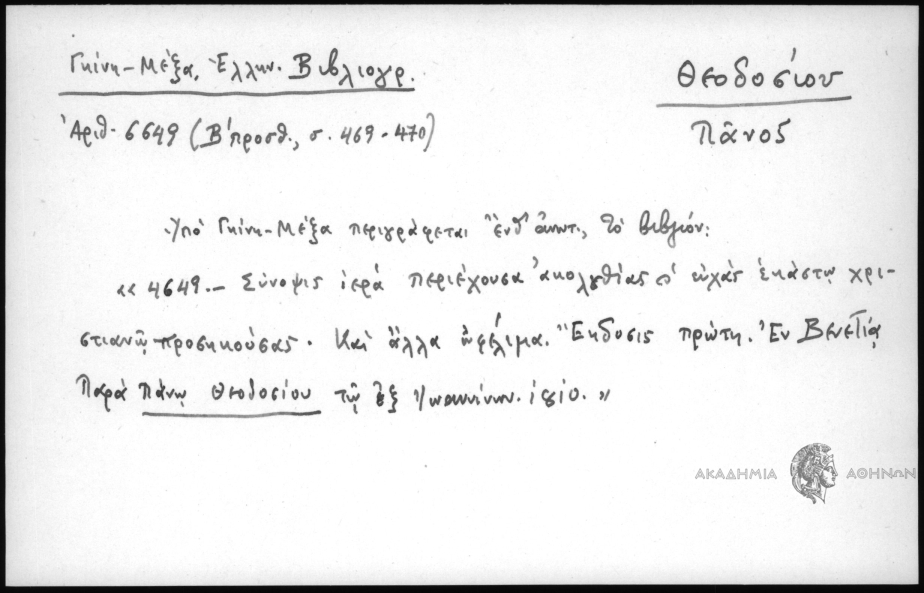 Γκίνη-Μέξα, Ἑλλην. Βιβλιογρ.
Θεοδοσίου
Πᾶνος
Ἀριθ. 6649 (Β' προσθ., σ. 469-470)
Ὑπὸ Γκίνη-Μέξα περιγράφεται ἔνθ' ἀνωτ., τὸ βιβλίον:
«4649.- Σύνοψις ἱερὰ περιέχουσα ἀκολουθίας ϗ εὐχὰς ἑκάστῳ χρι-
στιανῷ προσηκούσας. Καὶ ἄλλα ὠφέλιμα. Ἔκδοσις πρώτη. Ἐν Βενετίᾳ
Παρὰ Πάνῳ Θεοδοσίου τῷ ἐξ Ἰωαννίνων.
ΑΚΑΔΗΜΙΑ ΑΘΗΝΩΝ